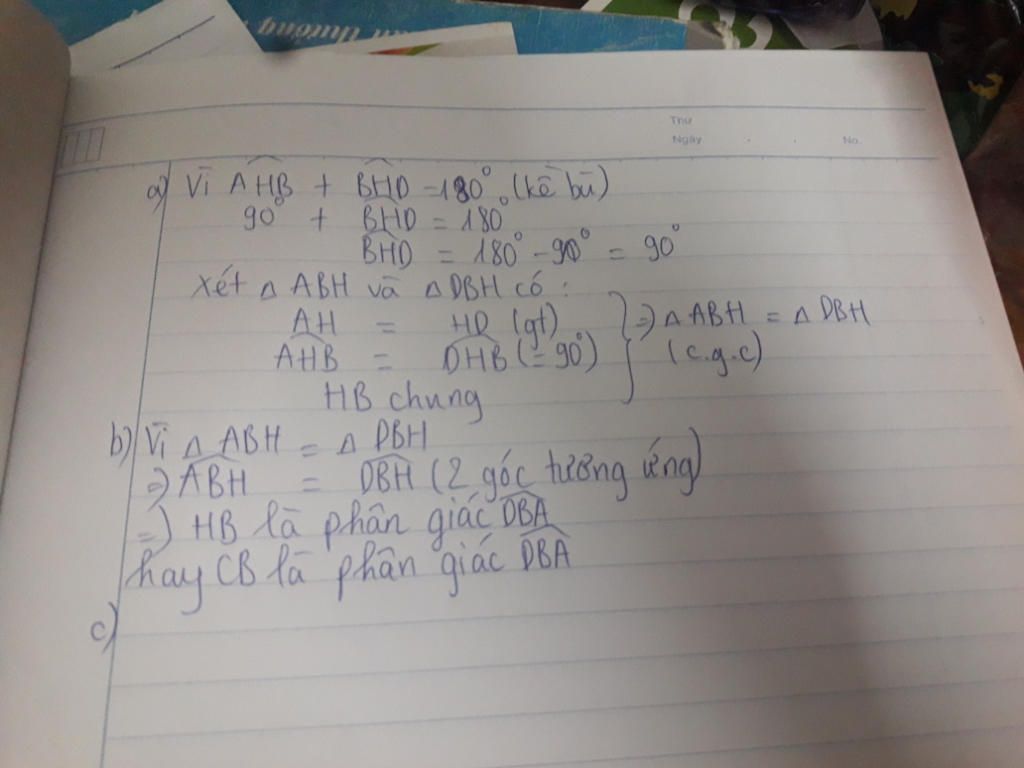 thưởng
Thứ
Ngày . . No.
a) Vì AHB + BHD = 180° (kề bù)
90° + BHD = 180°
BHD = 180° - 90° = 90°
Xét △ ABH và △ DBH có :
AH = HD (gt)
AHB = DHB (= 90°)
HB chung
} => △ ABH = △ DBH
(c.g.c)
b) Vì △ ABH = △ DBH
=> ABH = DBH (2 góc tương ứng)
=> HB là phân giác DBA
hay CB là phân giác DBA
c)